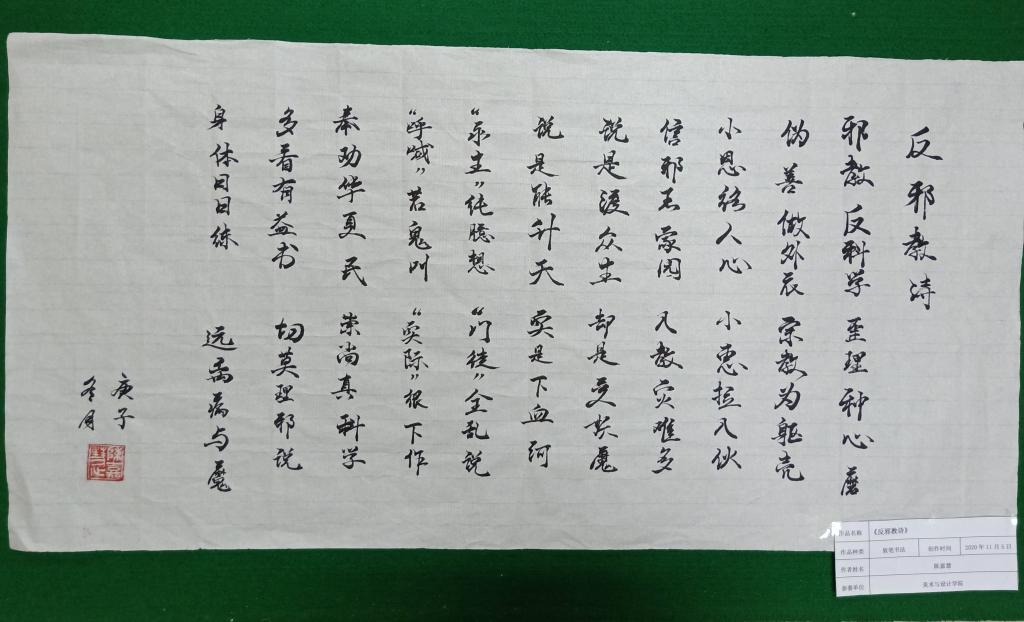 反邪教诗
邪教反科学 歪理种心蘑
伪善做外衣 宗教为躯壳
小恩纳人心 小惠拉入伙
信邪王家园 入教灾难多
说是渡众生 却是变妖魔
说是能升天 实是下血河
“求主”纯臆想 “门徒”全乱说
“呼喊”若鬼叫 “实际”很下作
奉劝华夏民 崇尚真科学
多看有益书 切莫理邪说
身体日日练 远离病与魔
庚子
冬月
作品名称 《反邪教诗》
作品种类 软笔书法 创作时间 2020年11月5日
作者姓名
参赛单位 美术与设计学院